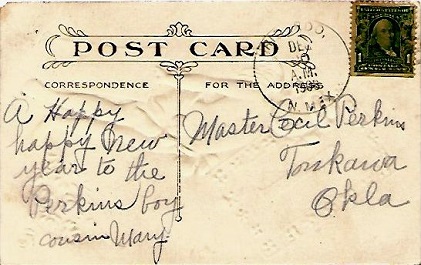 POST CARD
CORRESPONDENCE
FOR THE ADDRESS
DEC
A.M.
N. MEX
1
A Happy
happy New
year to the
Perkins boy
cousin Mary.
Master Cecil Perkins
Tonkawa
Okla